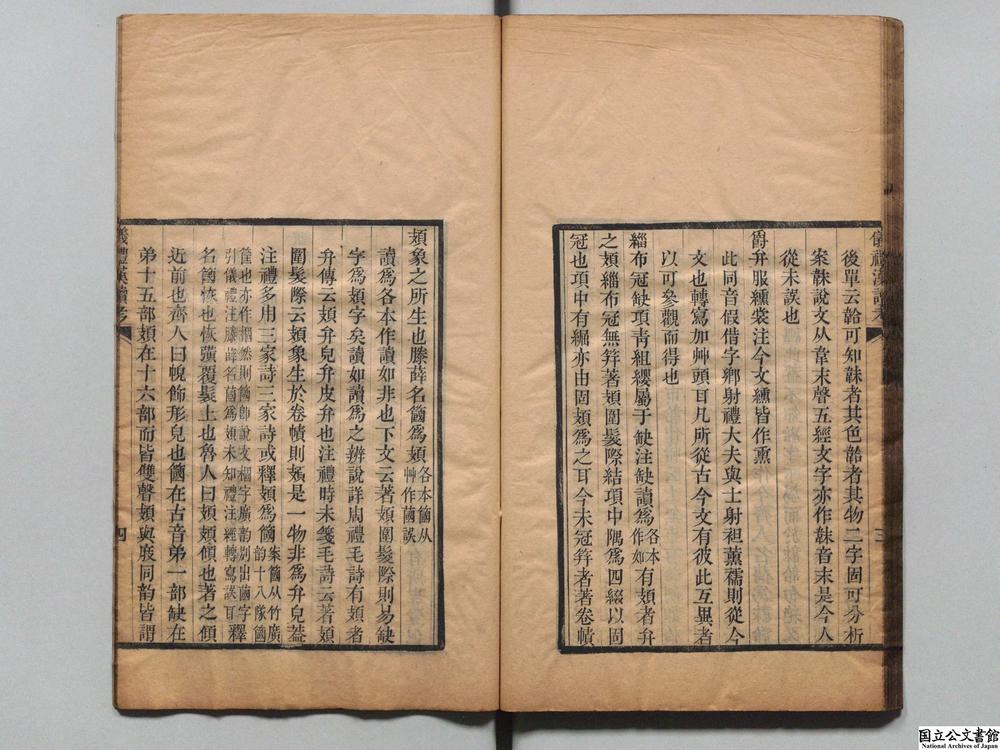 後單云韐可知韎者其色韐者其物二字固可分析
案韎說文从韋末聲五經文字亦作韎音末是今人
從未誤也
爵弁服纁裳注今文纁皆作熏
此同音假借字鄉射禮大夫與士射袒薰襦則從今
文也轉寫加艸頭耳凡所從古今文有彼此互異者
以可參觀而得也
緇布冠缺項靑組纓屬于缺注缺讀爲各本作如有頍者弁
之頍緇布冠無筓著頍圍髮際結項中隅爲四綴以固
冠也項中有䋿亦由固頍爲之耳今未冠筓者著卷幘
頍象之所生也滕薛名簂爲頍各本簂从艸作蔮誤
讀爲各本作讀如非也下文云著頍圍髮際則易缺
字爲頍字矣讀如讀爲之辨說詳周禮毛詩有頍者
弁傳云頍弁皃弁皮弁也注禮時未箋毛詩云著頍
圍髮際云頍象生於卷幘則頍是一物非爲弁皃葢
注禮多用三家詩三家詩或釋頍爲簂案簂从竹廣韵十八隊簂
筐也亦作槶然則簂卽說文槶字廣韵別出蔮字引儀禮注滕薛名蔮爲頍未知禮注經轉寫誤耳釋
名簂恢也恢𢋨覆髮上也魯人曰頍頍傾也著之傾
近前也齊人曰㡏飾形皃也簂在古音弟一部缺在
弟十五部頍在十六部而皆雙聲頍與㡏同韵皆謂
儀禮漢讀考
三
儀禮漢讀考
四
国立公文書館
National Archives of Japan